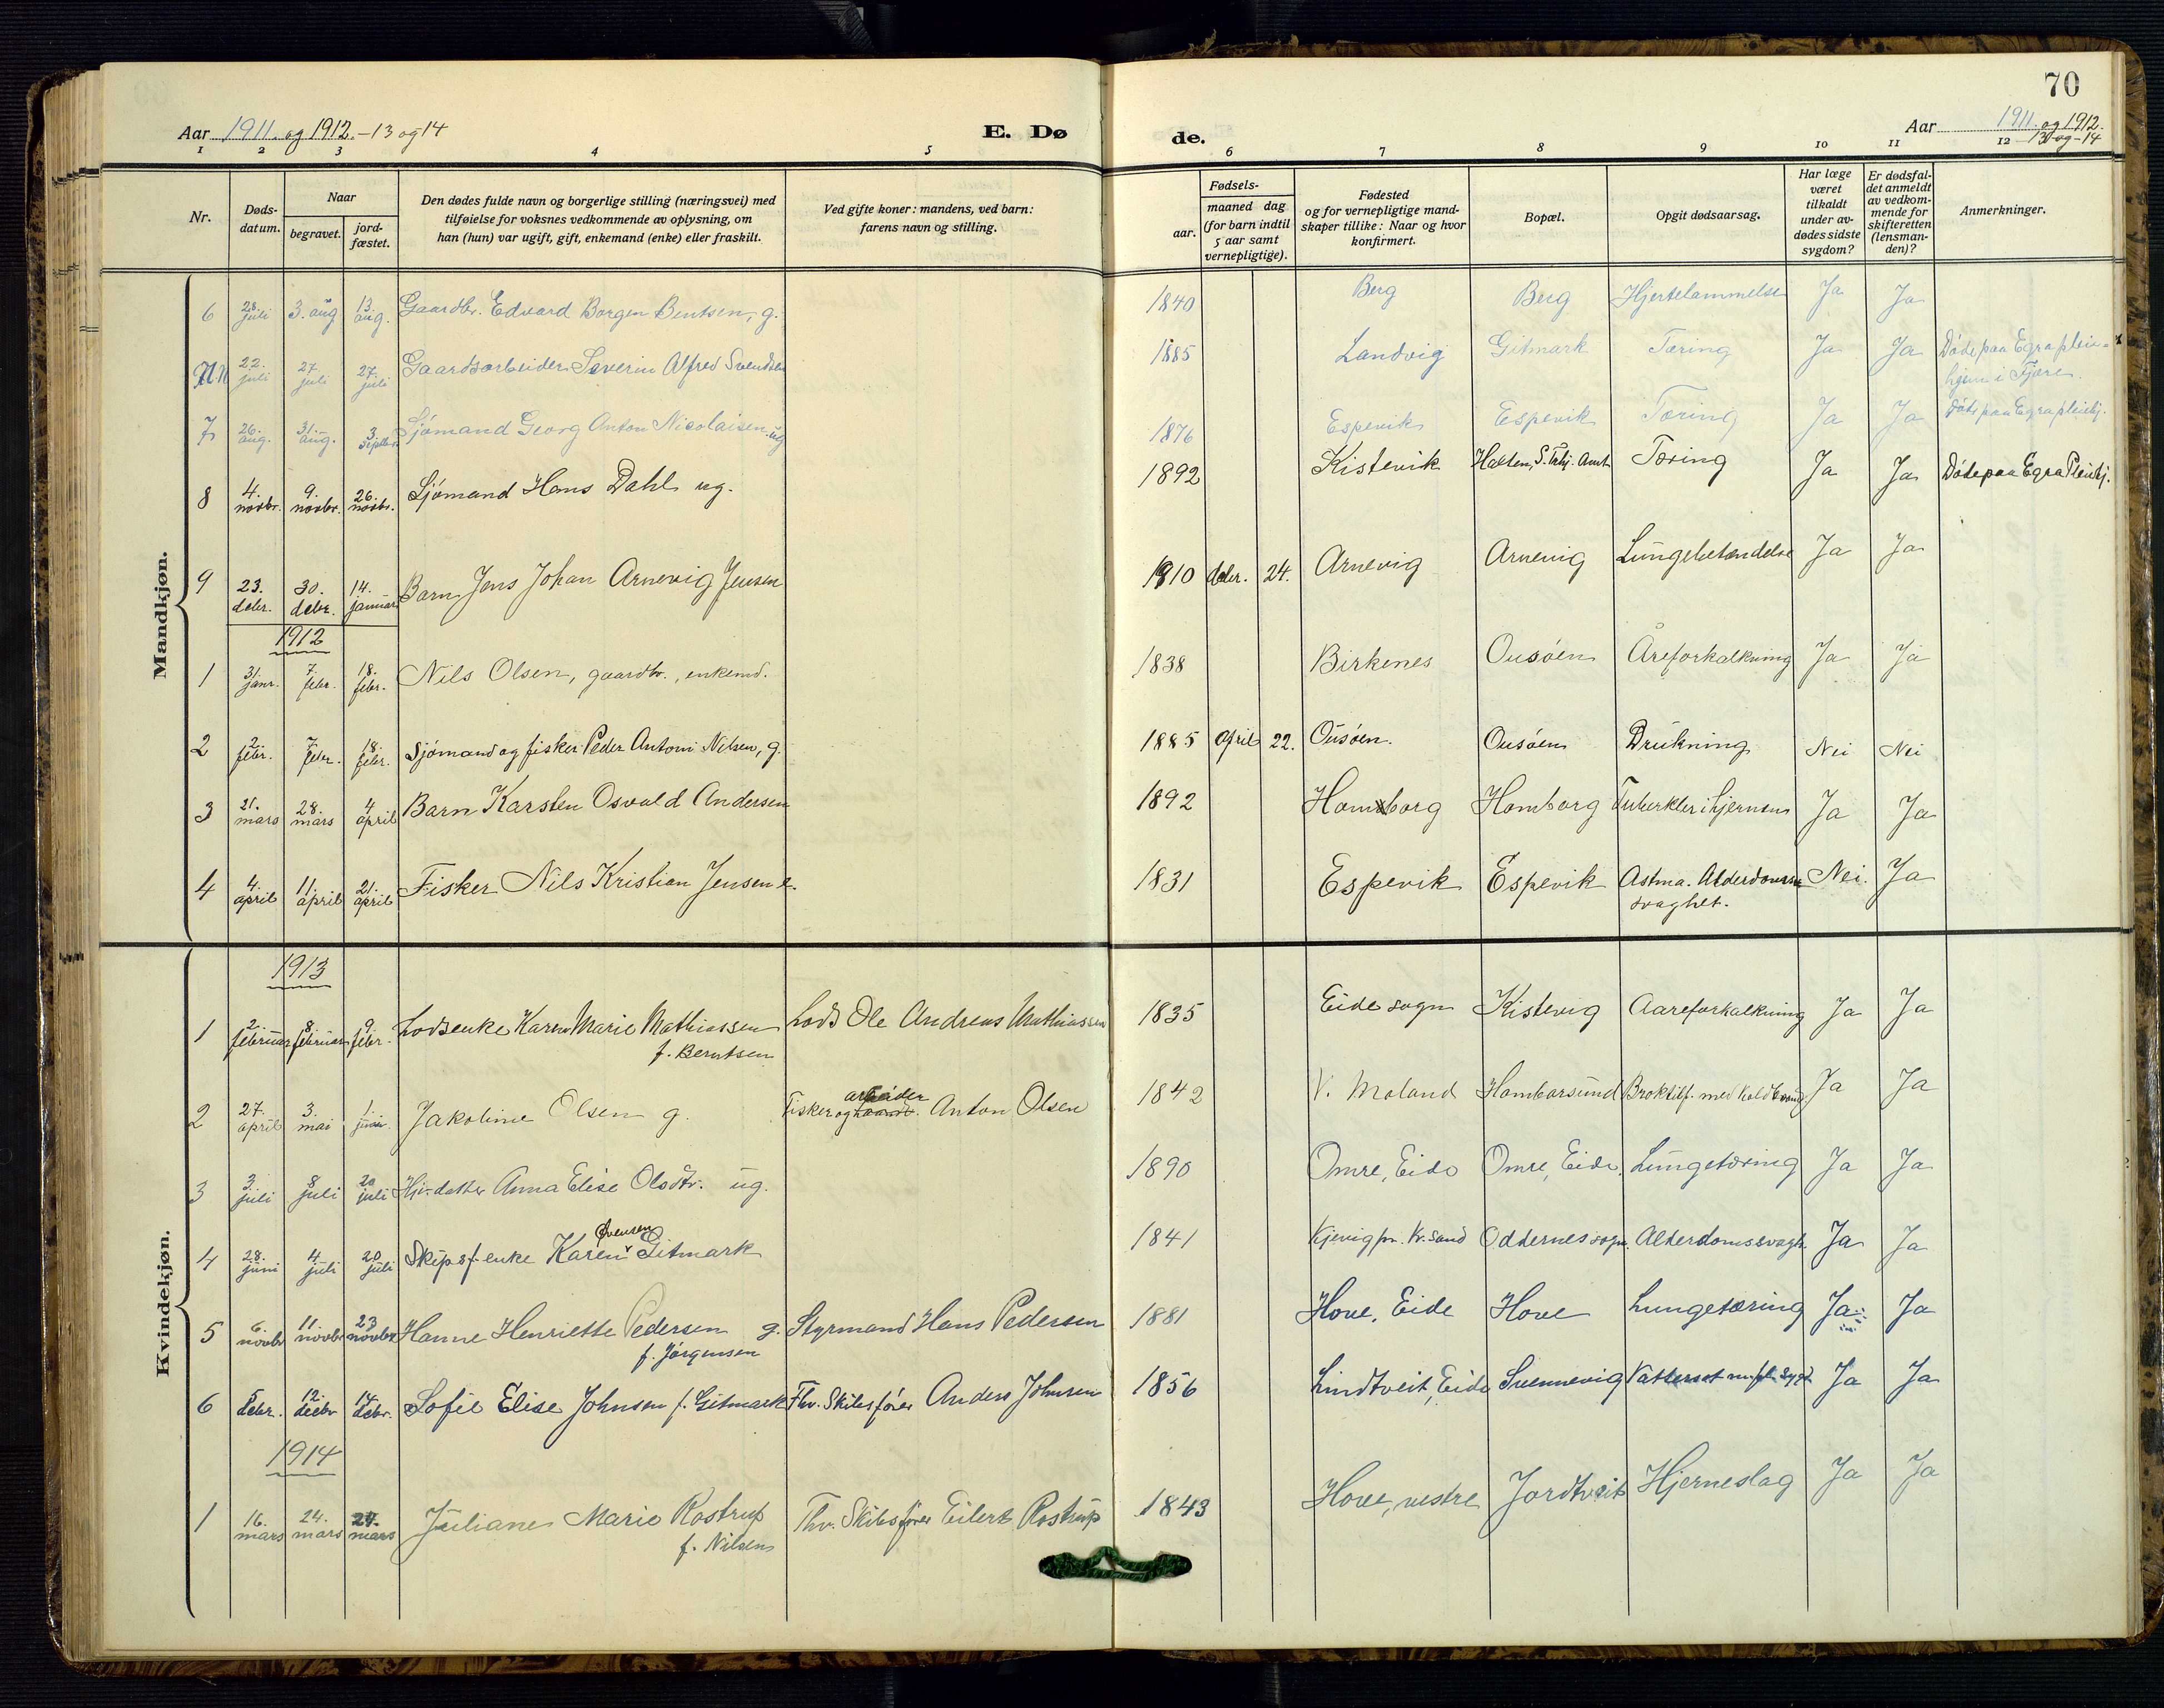 70
Aar 1911 og 1912 - 13 og 14
E. Dø
de.
Aar 1911 og 1912
- 13 og - 14
1 2 3 4 5 6 7 8 9 10 11 12
Nr.
Døds-
datum.
Naar
begravet.
jord-
fæstet.
Den dødes fulde navn og borgerlige stilling (næringsvei) med
tilføielse for voksnes vedkommende av oplysning, om
han (hun) var ugift, gift, enkemand (enke) eller fraskilt.
Ved gifte koner: mandens, ved barn:
farens navn og stilling.
Fødsels-
aar.
maaned dag
(for barn indtil
5 aar samt
vernepligtige).
Fødested
og for vernepligtige mand-
skaper tillike: Naar og hvor
konfirmert.
Bopæl.
Opgit dødsaarsag.
Har læge
været
tilkaldt
under av-
dødes sidste
sygdom?
Er dødsfal-
det anmeldt
av vedkom-
mende for
skifteretten
(lensman-
den)?
Anmerkninger.
Mandkjøn.
6 28. juli 3. aug 13. aug. Gaardbr. Edvard Borgen Bentsen, g. 1840 Berg Berg Hjertelammelse Ja Ja
22. juli 27. juli 27. juli Gaardsarbeider Severin Alfred Svendsen 1885 Landvig Gitmark Tæring Ja Ja Døde paa Egra pleie-
hjem i Fjære.
7 26. aug. 31. aug. 3 septbr. Sjømand Georg Anton Nicolaisen ug 1876 Espevik Espevik Tæring Ja Ja Døde paa Egra pleiehj.
8 4. novbr. 9. novbr. 26. novbr. Sjømand Hans Dahl ug. 1892 Kistevik Halten, S. Trhj. Amt Tæring Ja Ja Døde paa Egra Pleiehj.
9 23. debr. 30. debr. 14. januar Barn Jens Johan Arnevig Jensen 1910 debr. 24. Arnevig Arnevig Lungebetændelse Ja Ja
1912
1 31. janr. 7. febr. 18. febr. Nils Olsen, gaardbr., enkemd. 1838 Birkenes Ousøen Åreforkalkning Ja Ja
2 2. febr. 7. febr. 18. febr. Sjømand og fisker Peder Antoni Nilsen, g. 1885 April 22. Ousøen. Ousøen Drukning Nei Nei
3 21. mars 28. mars 4 april Barn Karsten Osvald Andersen 1892 Homborg Homborg Tuberkler i hjernen Ja Ja
4 4. april 11. april 21. april Fisker Nils Kristian Jensen e. 1831 Espevik Espevik Astma. Alderdoms
svaghet. Nei. Ja
Kvindekjøn.
1913
1 2. februar 8. februar 9. febr. Lodsenke Karen Marie Mathiassen Lods Ole Andreas Mathiassen 1835 Eide sogn Kistevig Aareforkalkning Ja Ja
f. Berntsen
2 27. april 3. mai 1. juni Jakoline Olsen g. Fisker og arbeider Anton Olsen 1842 V. Moland Homborsund Broktilf. med Koldbrand Ja Ja
3 3. juli 8 juli 20 juli datter Anna Elise Olsdtr. ug. 1890 Omre, Eide Omre, Eide. Lungetæring Ja Ja
4 28. juni 4. juli 20 juli Skipsf. enke Karen Svensen Gitmark 1841 Kjevig pr. Kr.sand Oddernes sogn. Alderdomssvagh. Ja Ja
5 6. novbr 11. novbr 23 novbr Hanne Henriette Pedersen g. Styrmand Hans Pedersen 1881 Hove, Eide Hove Lungetæring Ja Ja
f. Jørgensen
6 5 debr. 12. decbr 14. debr. Sofie Elise Johnsen f. Gitmark Fhv. Skibsfører Anders Johnsen 1856 Lindtveit, Eide Svennevig Vattersot Ja Ja
1914
1 16. mars 24. mars 24. mars Juliane Marie Rostrup Fhv. Skibsfører Eilert Rostrup 1843 Hove, vestre Jordtveit Hjerneslag Ja Ja
f. Nilsen